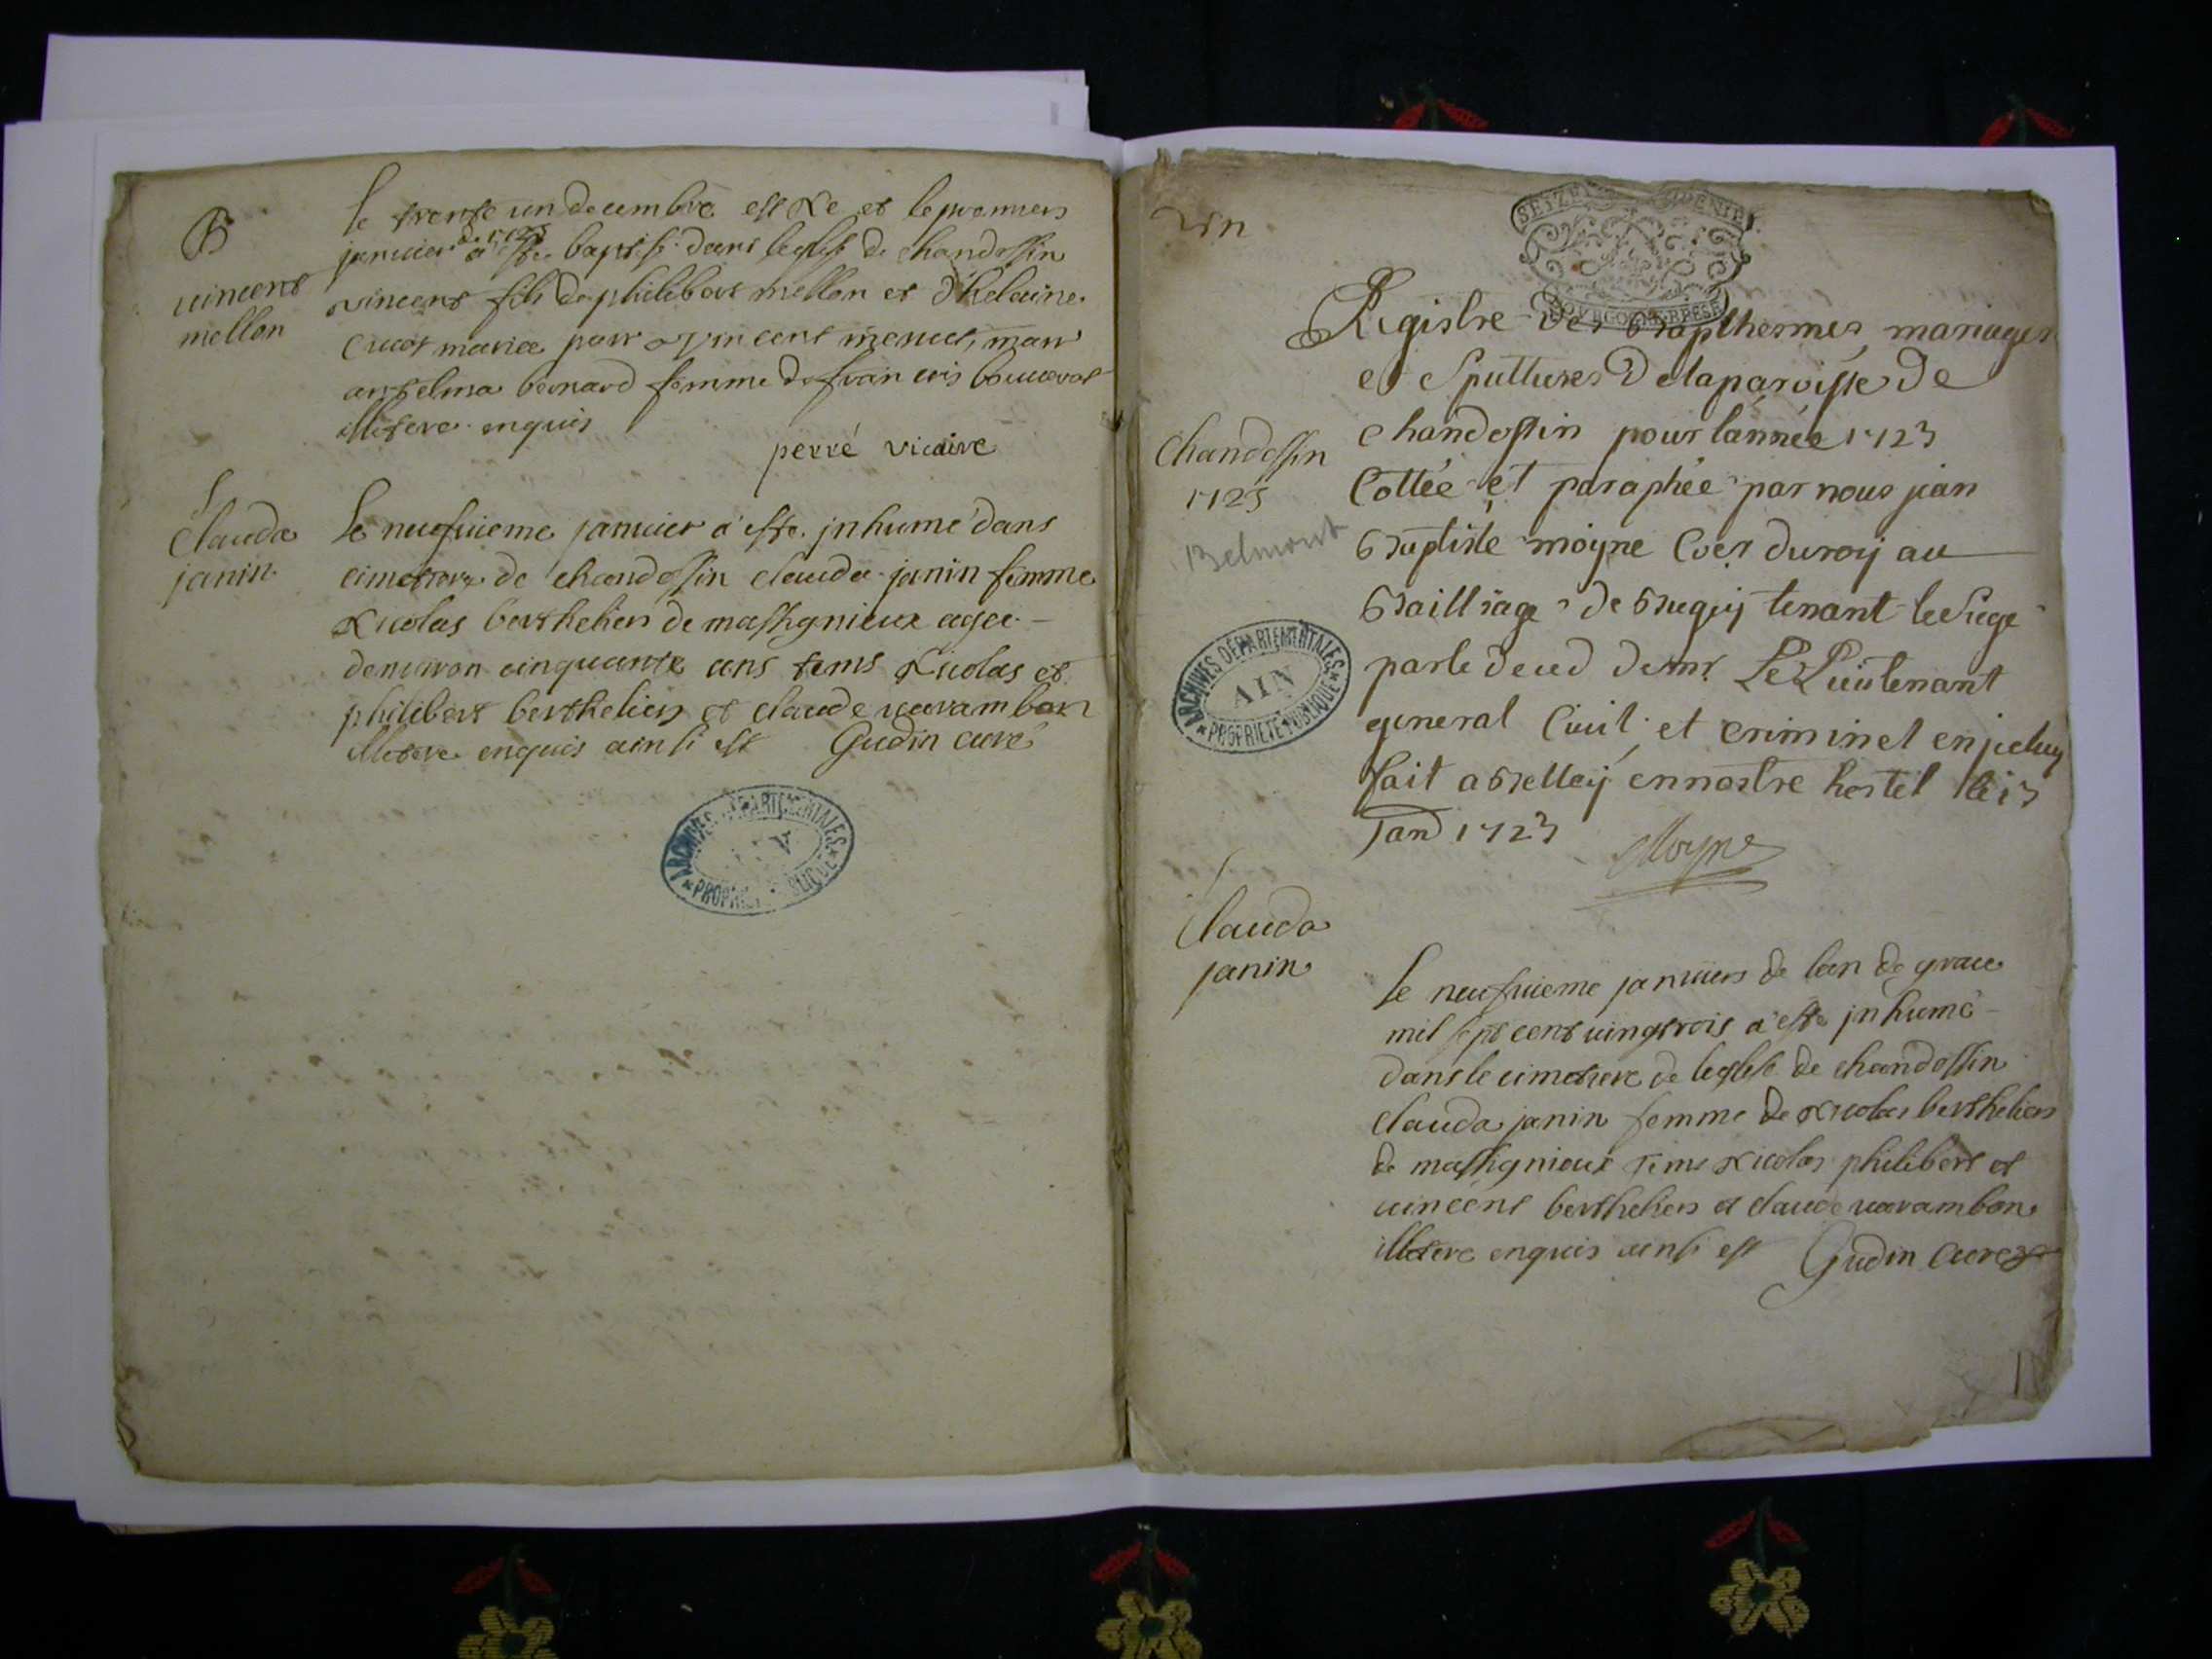 B
vincent
mellon
le trente un decembre est Ne et le premiers
janvier de 1723 a este baptisé dans leglise de chandossin
vincent fils de philibert mellon et d'helaine
marice parr vincent marr
anthelma bernard femme de francois bonnevat
illetere enquis
perré vicaire
S
Clauda
janin
le neufvieme janvier a este jnhumé dans
cimetiere de chandossin clauda janin femme
Nicolas berthelier de massignieux agee
denviron cinquante ans tems Nicolas et
philibert berthelier et claude varambon
illetere enquis ainsi est Gudin curé
ARCHIVES DÉPARTEMENTALES
AIN
PROPRIÉTÉ PUBLIQUE
SEIZE
BOURGOGNE BRESSE
Registre des Bapthesmes mariages
et Spultures De la paroisse De
chandossin pour lánnée 1723
Cottée et paraphée par nous jean
Baptiste moyne Coer du roy au
Bailliage de Bugey tenant le siege
par le deced de mr Le Lieutenant
general Civil et criminel en jceluy
fait a Belley en nostre hostel le 13
Janv 1723
Moyne
Chandossin
1723
Belmont
ARCHIVES DÉPARTEMENTALES
AIN
PROPRIÉTÉ PUBLIQUE
S
Clauda
janin
le neufvieme janviers de lan de grace
mil sept cent vingtrois a este jnhumé
dans le cimetiere de leglise de chandossin
clauda janin femme de Nicolas berthelier
de massignieux tems Nicolas philibert et
vincent berthelier et claude varambon
illetere enquis ainsi est Gudin Curé